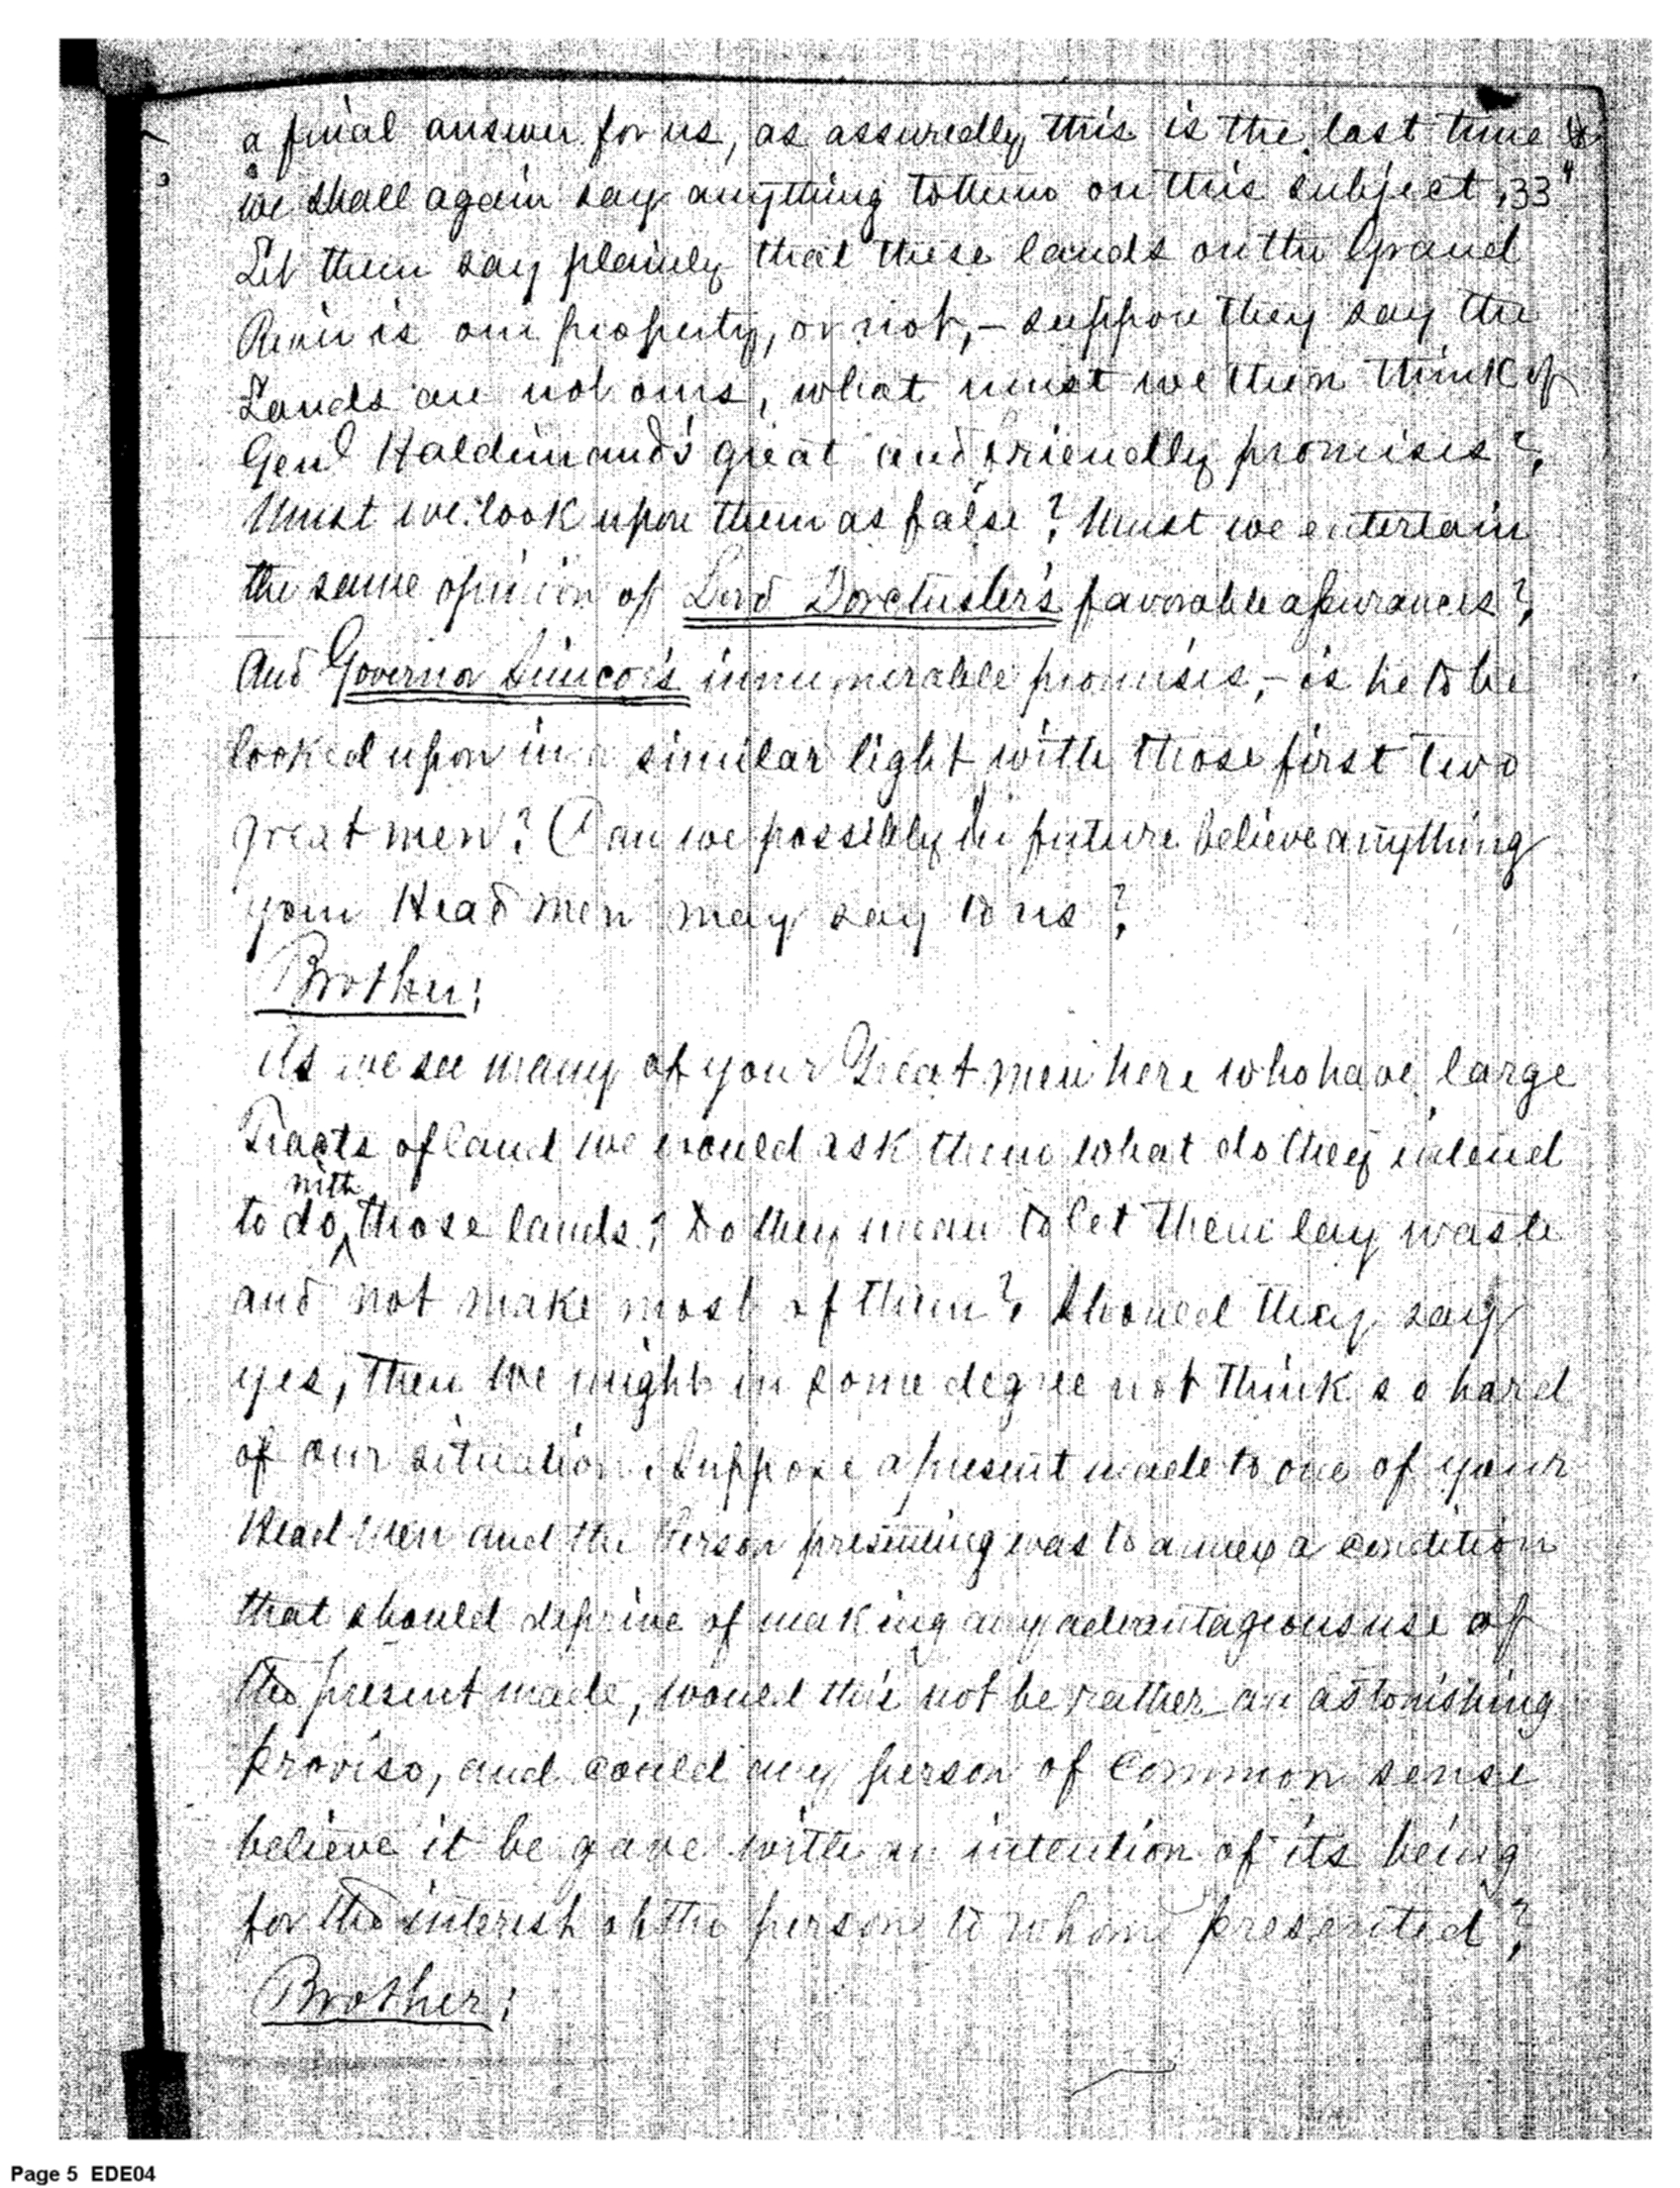 a final answer for us, as assuredly this is the last time
we shall again say anything to them on this subject. 33
Let them say plainly that these lands on the Grand
River is our property, or not,- suppose they say the
Lands are not ours, what must we then think of
Genl Haldimand's great and friendly promises?
Must we look upon them as false? Must we entertain
the same opinion of Lord Dorchester's favorable assurances?
And Governor Simcoe's innumerable promises,- is he to be
looked upon in a similar light with those first two
great men? Can we possibly in future believe anything
your Head men may say to us?
Brother:
As we see many of your Great men here who have large
Tracts of land we would ask them what do they intend
with
to do those lands? Do they mean to let them lay waste
and not make most of them? Should they say
yes, then we might in some degree not think so hard
of our situation. Suppose a present made to one of your
Head Men and the Person presenting was to annex a condition
that should deprive of making any advantageous use of
the present made, would this not be rather an astonishing
proviso, and could any person of Common sense
believe it be gave with an intention of its being
for the interest of the person to whom presented?
Brother:
Page 5 EDE04